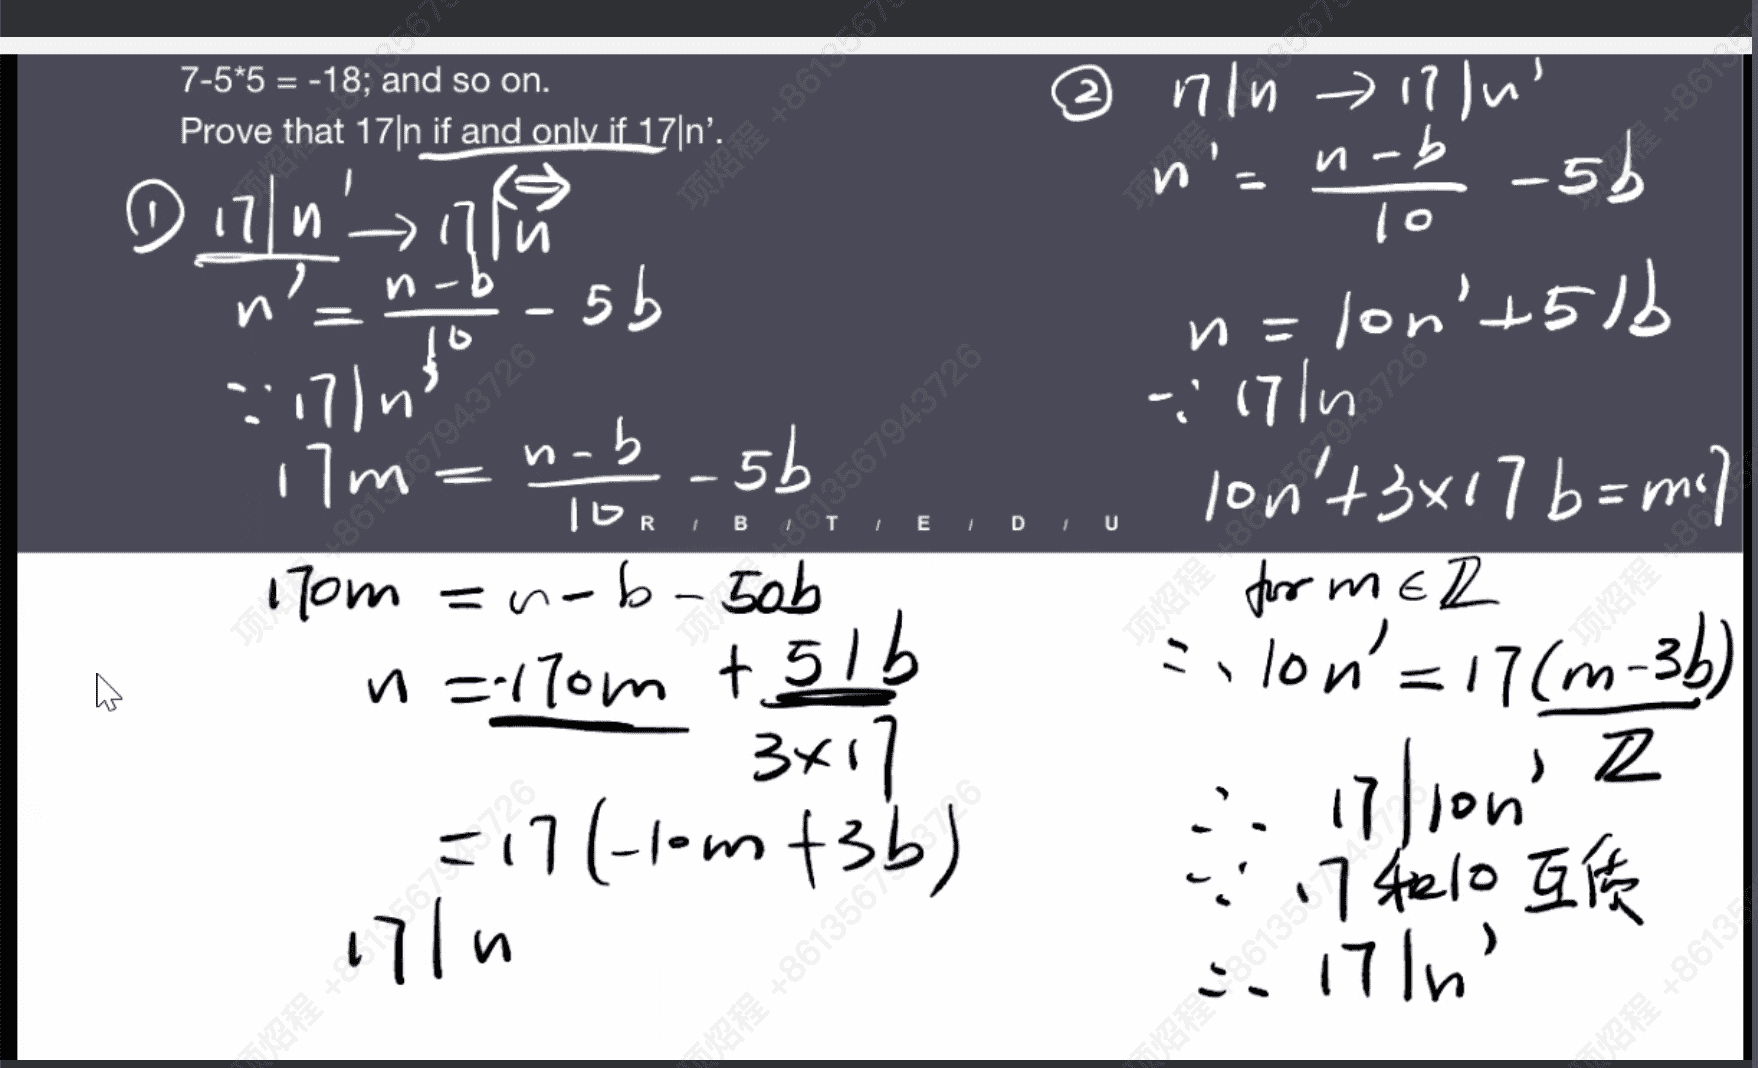 7-5*5 = -18; and so on.
Prove that 17|n if and only if 17|n’.
① 17|n' → 17|n
⟺
n' = (n-b)/10 - 5b
∵ 17|n'
17m = (n-b)/10 - 5b
R / B / T / E / D / U
170m = n - b - 50b
n = -170m + 51b
3×17
= 17(-10m + 3b)
17|n
② 17|n → 17|n'
n' = (n-b)/10 - 5b
n = 10n' + 51b
∵ 17|n
10n' + 3×17b = m17
for m ∈ ℤ
∴ 10n' = 17(m-3b)
ℤ
∴ 17|10n'
∵ 17和10互质
∴ 17|n'
项焰程 +8613567943726